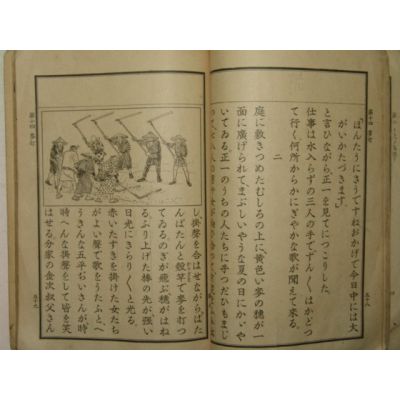 「ほんたうにさうですねおかげで今日中には大
がいかたづきます。」
と言ひながら正一を見てにつこりした。
仕事は水入らずの三人の手でずん〳〵はかどつ
て行く。何所からかにぎやかな歌が聞えて来る。
二
庭に敷きつめたむしろの上に、黄色い麦の穂が一
面に廣げられて、まぶしいやうな夏の日にかゞや
いてゐる。正一のうちの人たちに手つだひもまじ
し、掛聲を合はせながら、ばた
んばたんと殻竿で麦を打つ
てゐる。のぎが飛ぶ。穂がはね
る。ふり上げた棒の先が強い
日光にきらり〳〵と光る。
赤いたすきを掛けた女たち
がよい聲で歌をうたふと、へ
うきんな五平ぢいさんが、時
時へんな掛聲をして皆を笑
はせる。分家の金次叔父さん
第十四 麦打
五十八
第十四 麦打
五十九